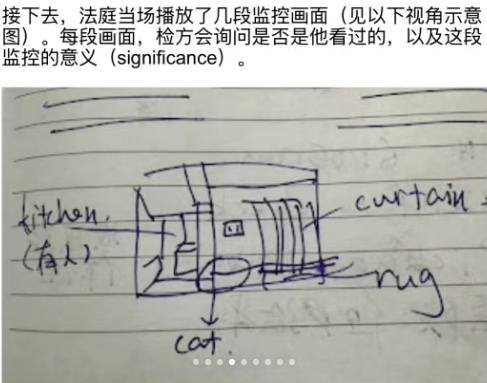 接下去，法庭当场播放了几段监控画面（见以下视角示意
图）。每段画面，检方会询问是否是他看过的，以及这段
监控的意义（significance）。
kitchen.
（有人）
curtain.
rug
cat.